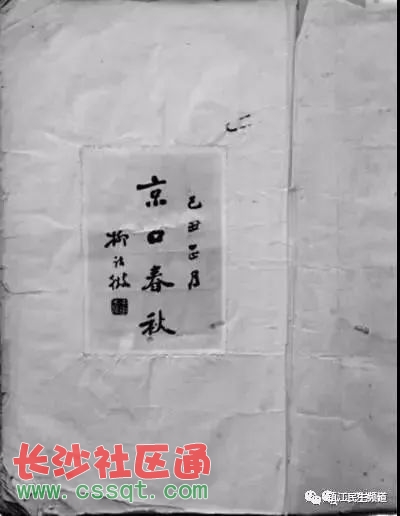 己丑正月
京口春秋
柳诒徵
长沙社区通
www.cssqt.com
镇江民生频道